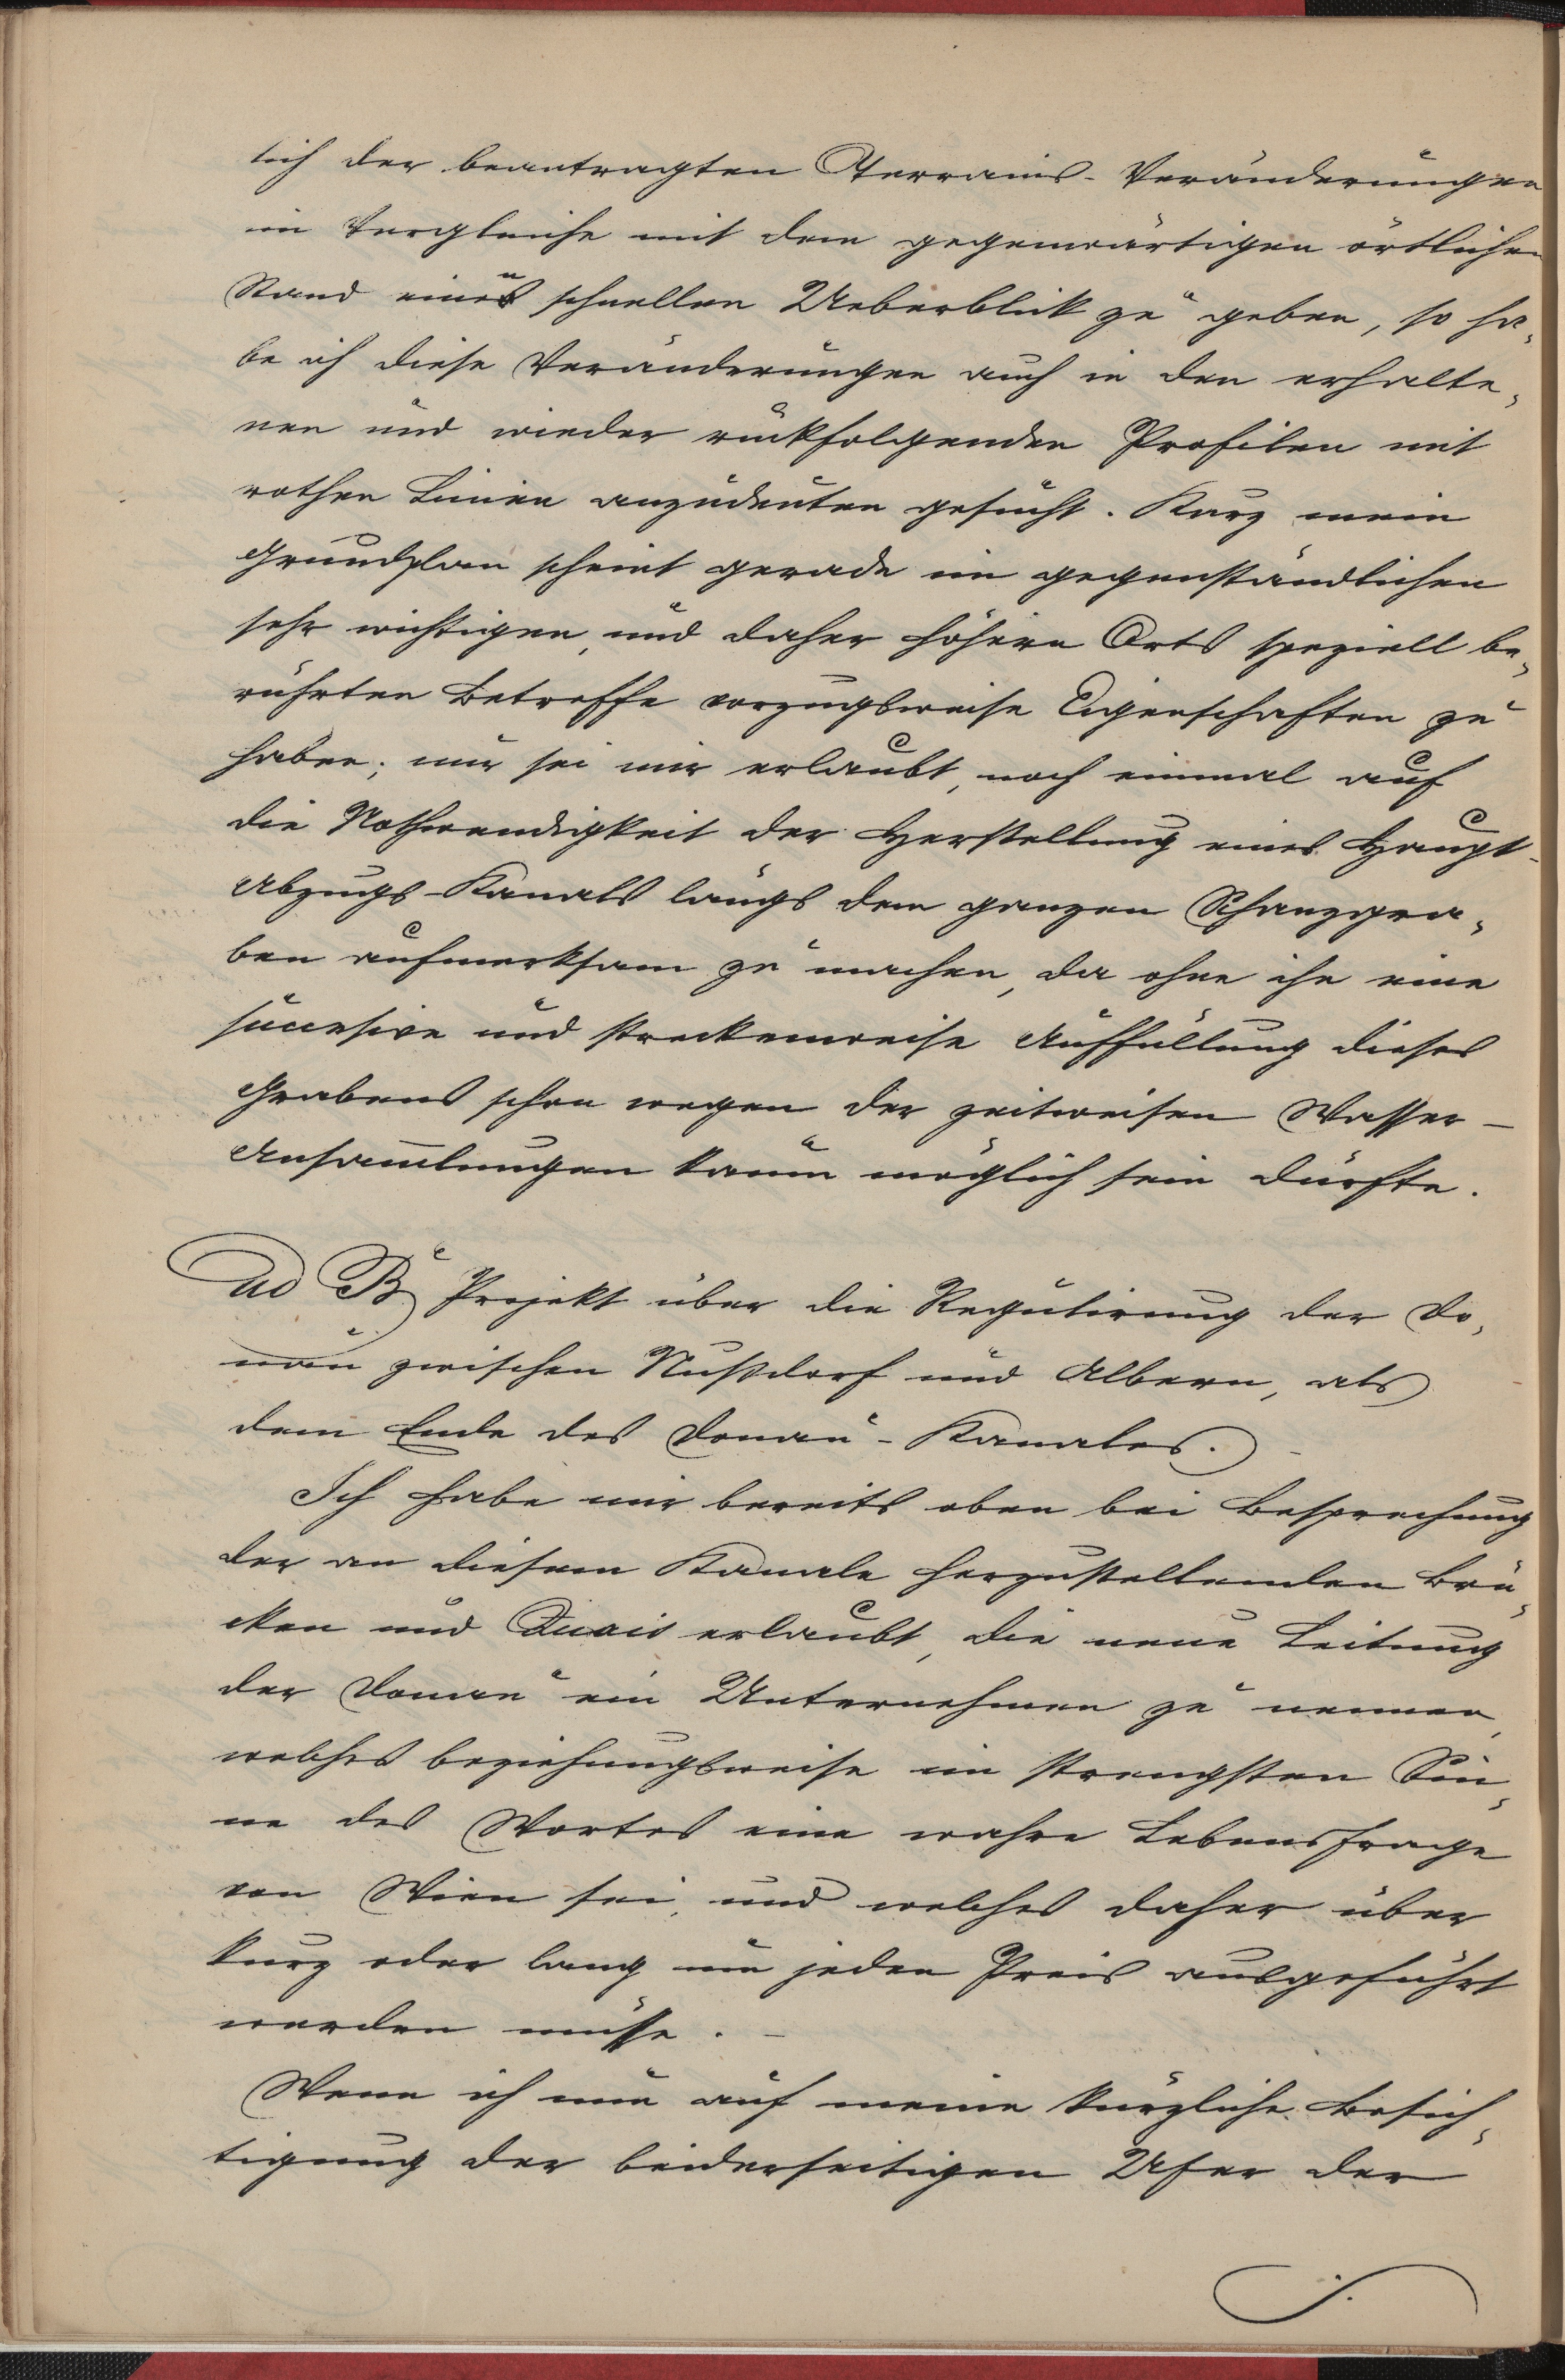 lich der beantragten Terrains-Veränderungen
im Vergleiche mit dem gegenwärtigen örtlichen
Stand einen schnellen Ueberblick zu geben, so ha,
be ich diese Veränderungen auch in den erhalte,
nen und wieder rückfolgenden Profilen mit
rothen Linien anzudeuten gesucht. Kurz mein
Grundplan scheint gerade im gegenständlichen
sehr wichtigen, und daher höhern Orts speziell be,
rührten Betreffe vorzugsweise Eigenschaften zu
haben; nur sei mir erlaubt, noch einmal auf
die Nothwendigkeit der Herstellung eines Haupt-
Abzugs-Kanals längs dem ganzen Schanzgra,
ben aufmerksam zu machen, da ohne ihn eine
succesive und streckenweise Auffüllung dieses
Grabens schon wegen der zeitweisen Wasser-
Ansam̅lungen kaum möglich sein dürfte.
Ad B, Projekt über die Regulirung der Do,
nau zwischen Nußdorf und Albern, als
dem Ende des Donau-Kanales. -
Ich habe mir bereits oben bei Besprechung
der an diesem Kanale herzustellenden Brü,
cken und Quais erlaubt, die neue Leitung
der Donau ein Unternehmen zu nennen,
welches beziehungsweise im strengsten Sin,
ne des Wortes eine wahre Lebensfrage
von Wien sei, und welches daher über
kurz oder lang um jeden Preis ausgeführt
werden müsse. -
Wenn ich nun auf meine kürzliche Besich,
tigung der beiderseitigen Ufer der
./.